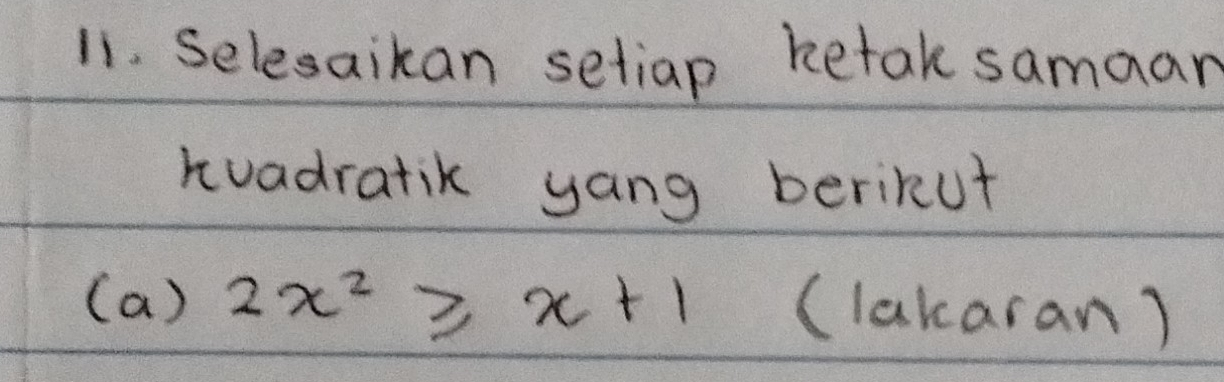 11. Selesaikan setiap ketaksamaan
kuadratik yang berikut
(a) 2x² ⩾ x + 1 (lakaran)